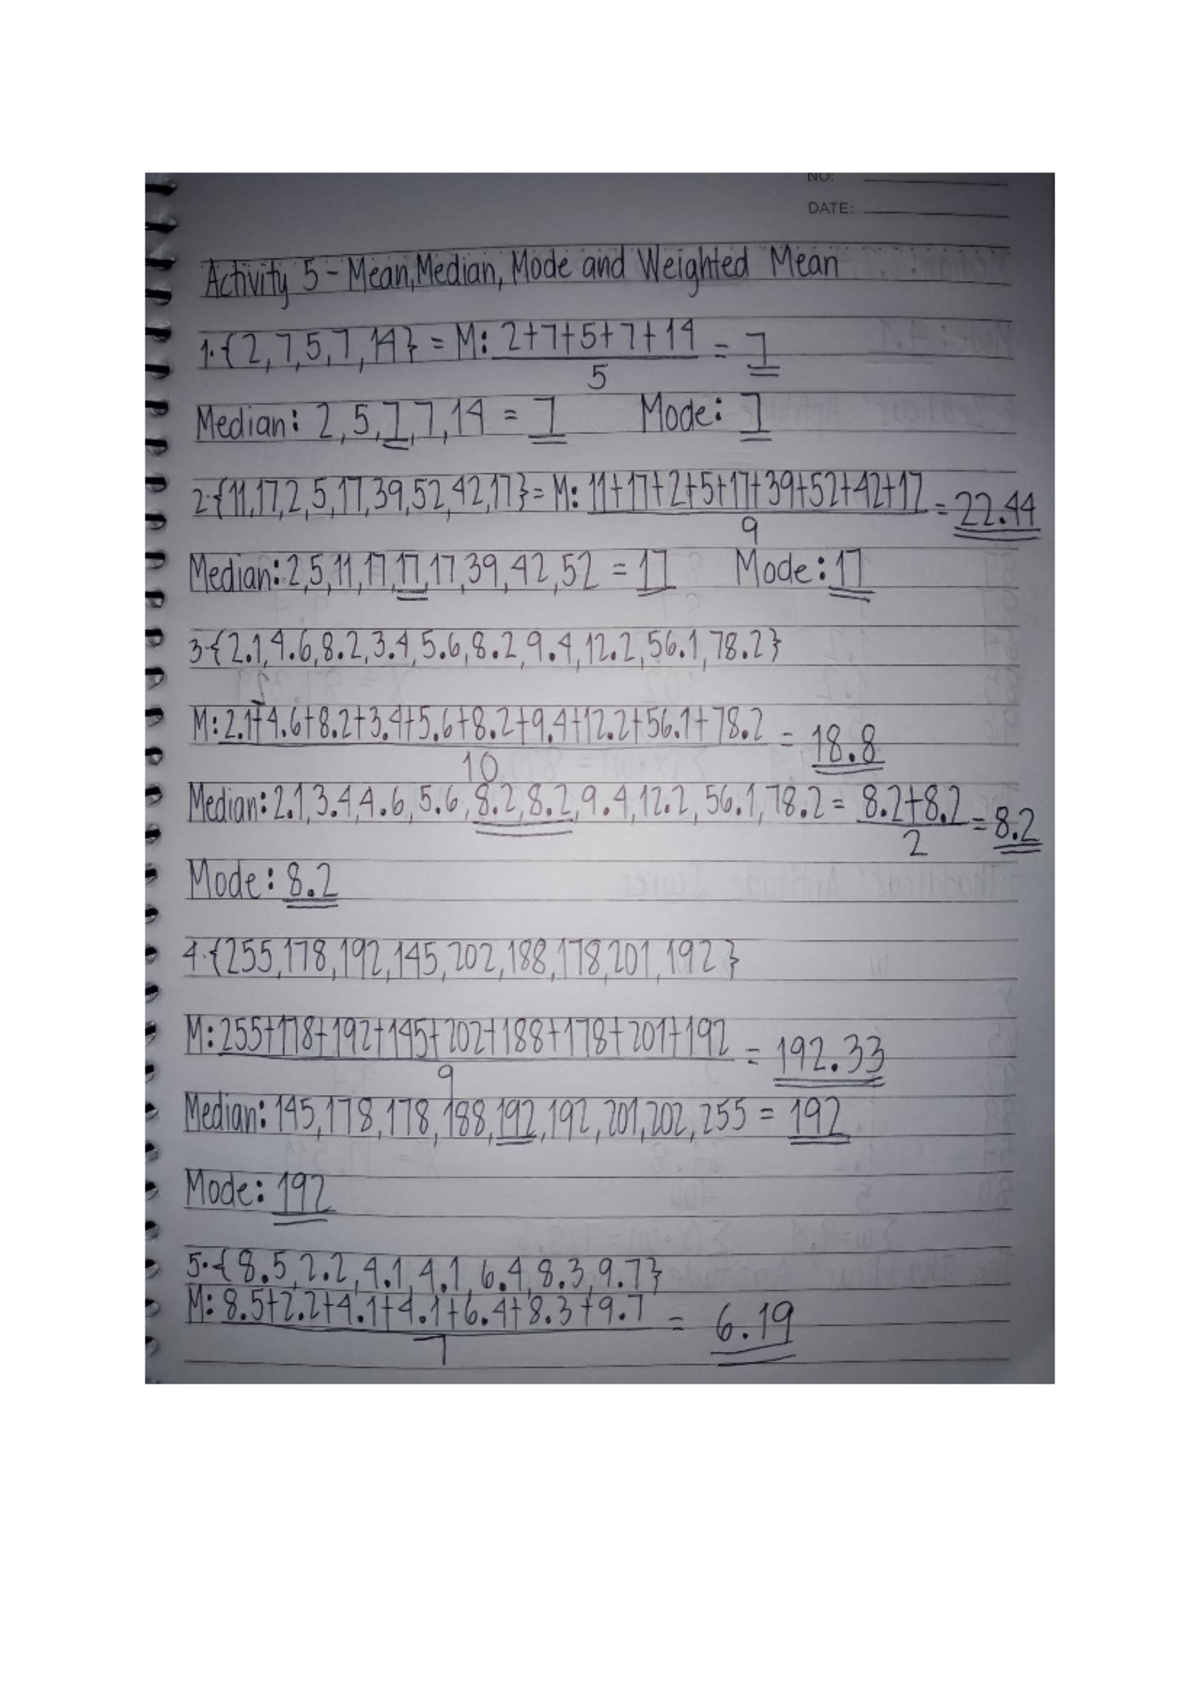 NO:
DATE:
Activity 5 - Mean, Median, Mode and Weighted Mean
1. {2, 7, 5, 7, 14} = M: 2+7+5+7+14 = 7
5
Median: 2, 5, 7, 7, 14 = 7 Mode: 7
2. {11, 17, 2, 5, 17, 39, 52, 42, 17} = M: 11+17+2+5+17+39+52+42+17 = 22.44
9
Median: 2, 5, 11, 17, 17, 17, 39, 42, 52 = 17 Mode: 17
3. {2.1, 4.6, 8.2, 3.4, 5.6, 8.2, 9.4, 12.2, 56.1, 78.2}
M: 2.1+4.6+8.2+3.4+5.6+8.2+9.4+12.2+56.1+78.2 = 18.8
10
Median: 2.1, 3.4, 4.6, 5.6, 8.2, 8.2, 9.4, 12.2, 56.1, 78.2 = 8.2+8.2 = 8.2
2
Mode: 8.2
4. {255, 178, 192, 145, 202, 188, 178, 201, 192}
M: 255+178+192+145+202+188+178+201+192 = 192.33
9
Median: 145, 178, 178, 188, 192, 192, 201, 202, 255 = 192
Mode: 192
5. {8.5, 2.2, 4.1, 4.1, 6.4, 8.3, 9.7}
M: 8.5+2.2+4.1+4.1+6.4+8.3+9.7 = 6.19
7